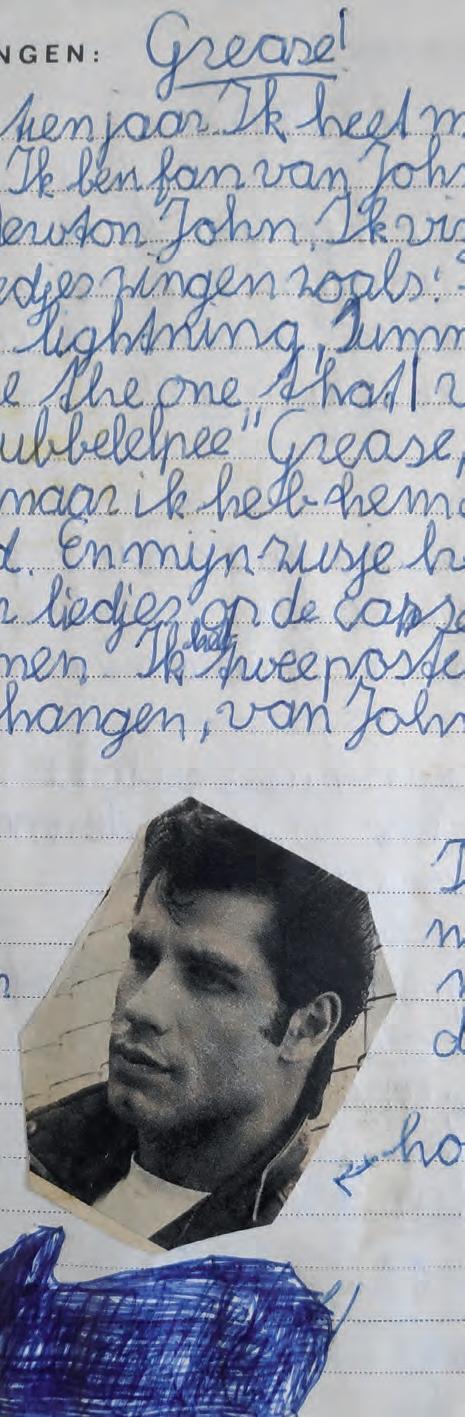 NGEN: Grease!
tien jaar. Ik heet m
Ik ben fan van Joh
Newton John. Ik vi
edjes zingen zoals:
lightning, Summ
e the one that I
ubbelelpee" Grease,
maar ik heb hem
d. En mijn zusje h
n liedjes op de
men. Ik heb twee poste
hangen, van John
I
n
d
ho